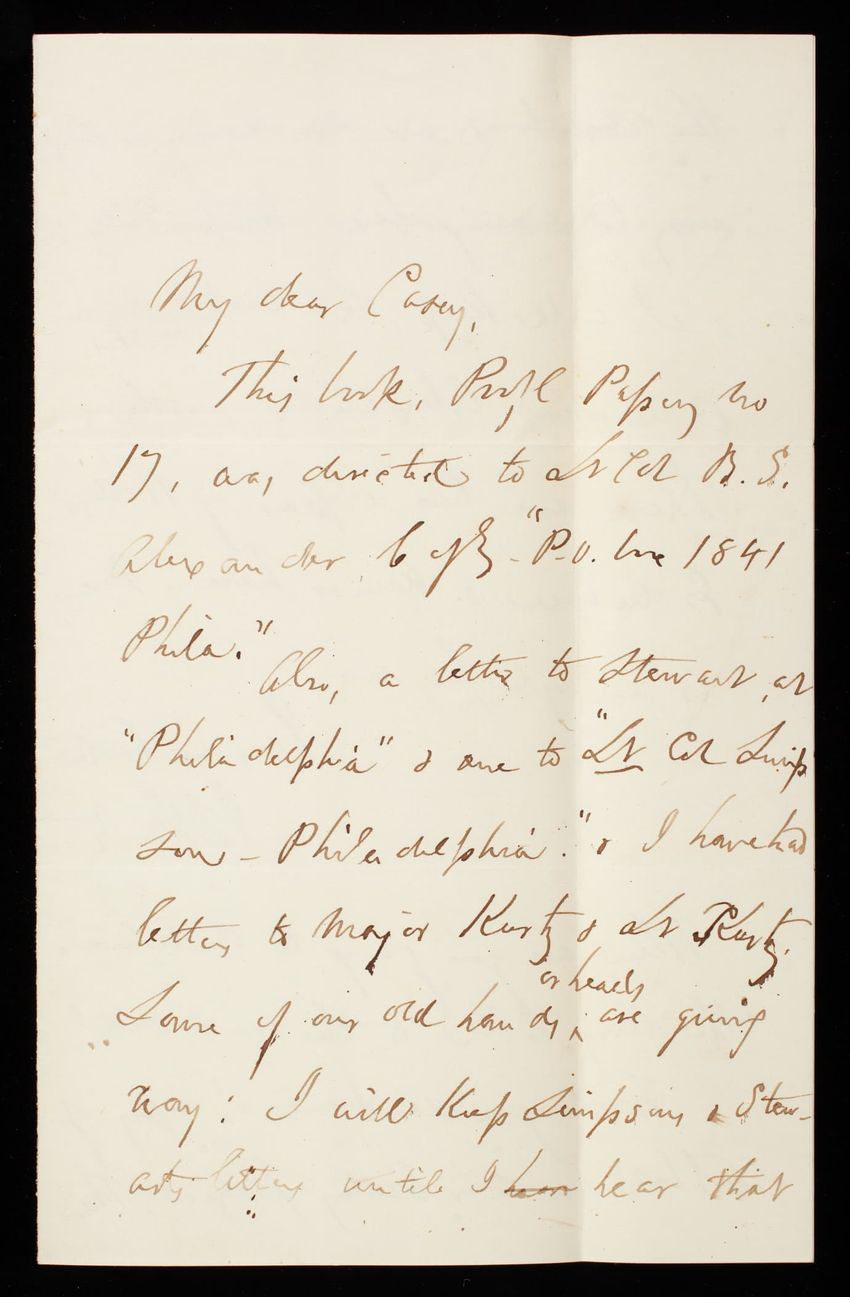 My dear Casey,
This book, Prof'l Papers No
17, was directed to Lt Col B. S.
Alexander, C of E - "P.O. box 1841
Phila."
Also, a letter to Stewart, at
"Philadelphia" & one to "Lt Col Simp
son - Philadelphia." & I have had
letters to Major Kurtz & Lt Kurtz.
or heads
Some of our old hands, ^ are giving
way: I will keep Simpsons & Stew-
arts letters until I hear that